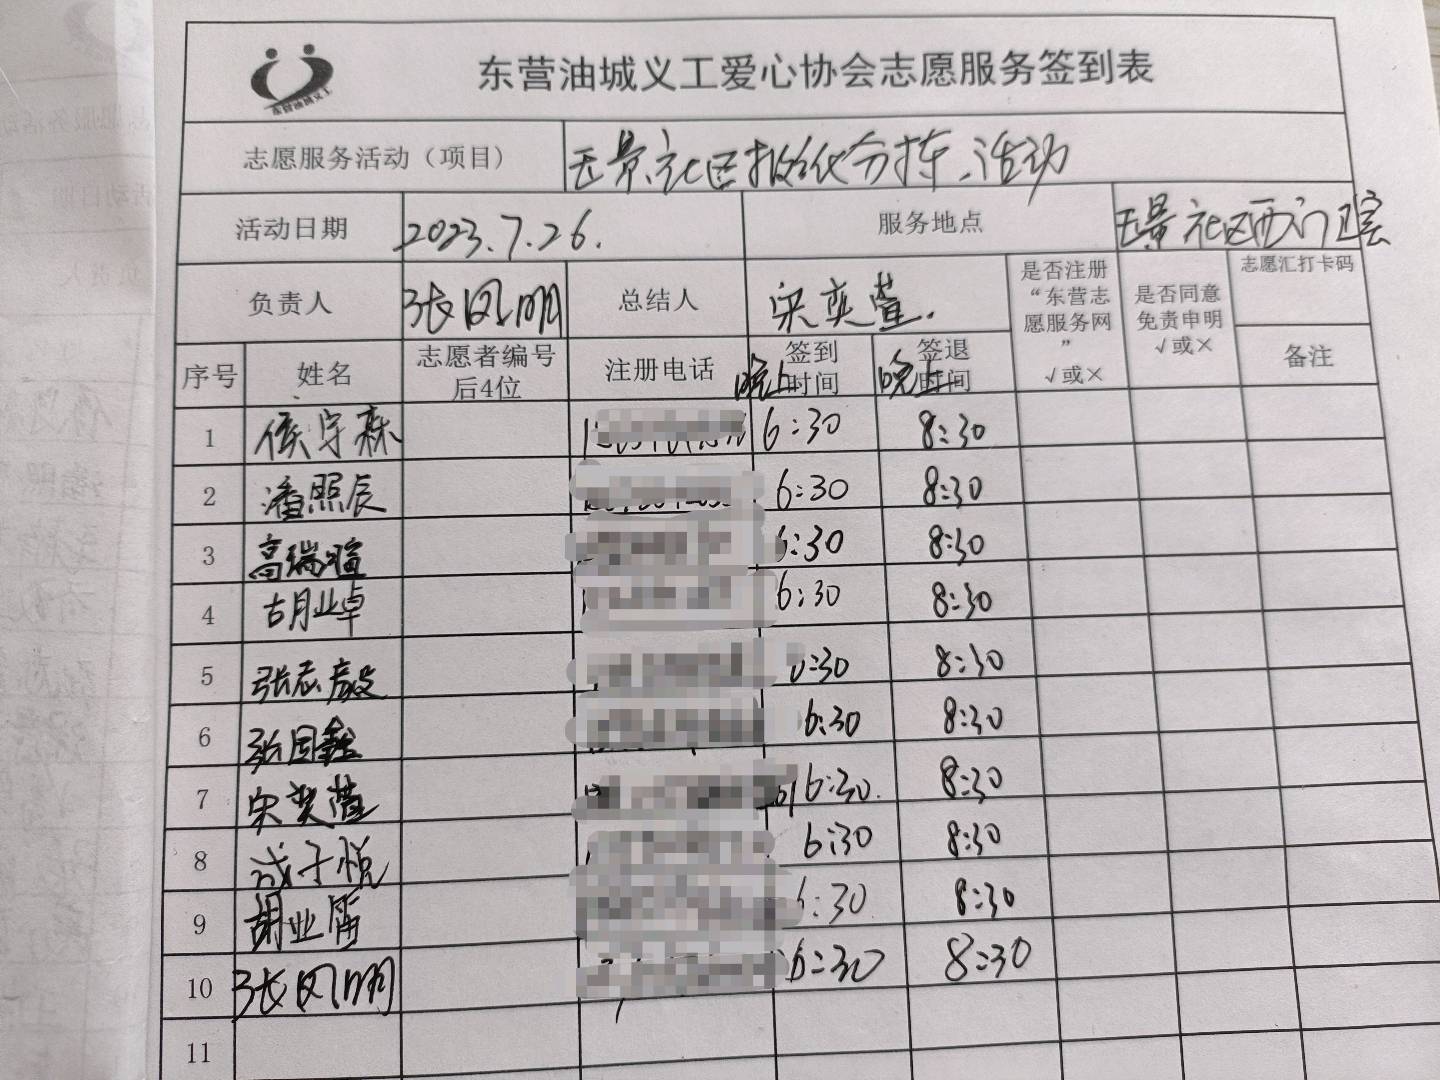 东营油城义工
东营油城义工爱心协会志愿服务签到表
志愿服务活动（项目） 五景社区报纸分拣活动
活动日期 2023.7.26. 服务地点 五景社区西门卫室
负责人 张凤明 总结人 宋奕萱. 是否注册“东营志愿服务网” √或× 是否同意免责申明 √或× 志愿汇打卡码
序号 姓名 志愿者编号后4位 注册电话 签到时间 晚上 签退时间 晚上 备注
1 侯宇森 6:30 8:30
2 潘照辰 6:30 8:30
3 高瑞暄 6:30 8:30
4 胡业卓 6:30 8:30
5 张志毅 :30 8:30
6 张国鑫 6:30 8:30
7 宋奕萱 6:30. 8:30
8 成子悦 6:30 8:30
9 胡业 6:30 8:30
10 张凤明 6:30 8:30
11